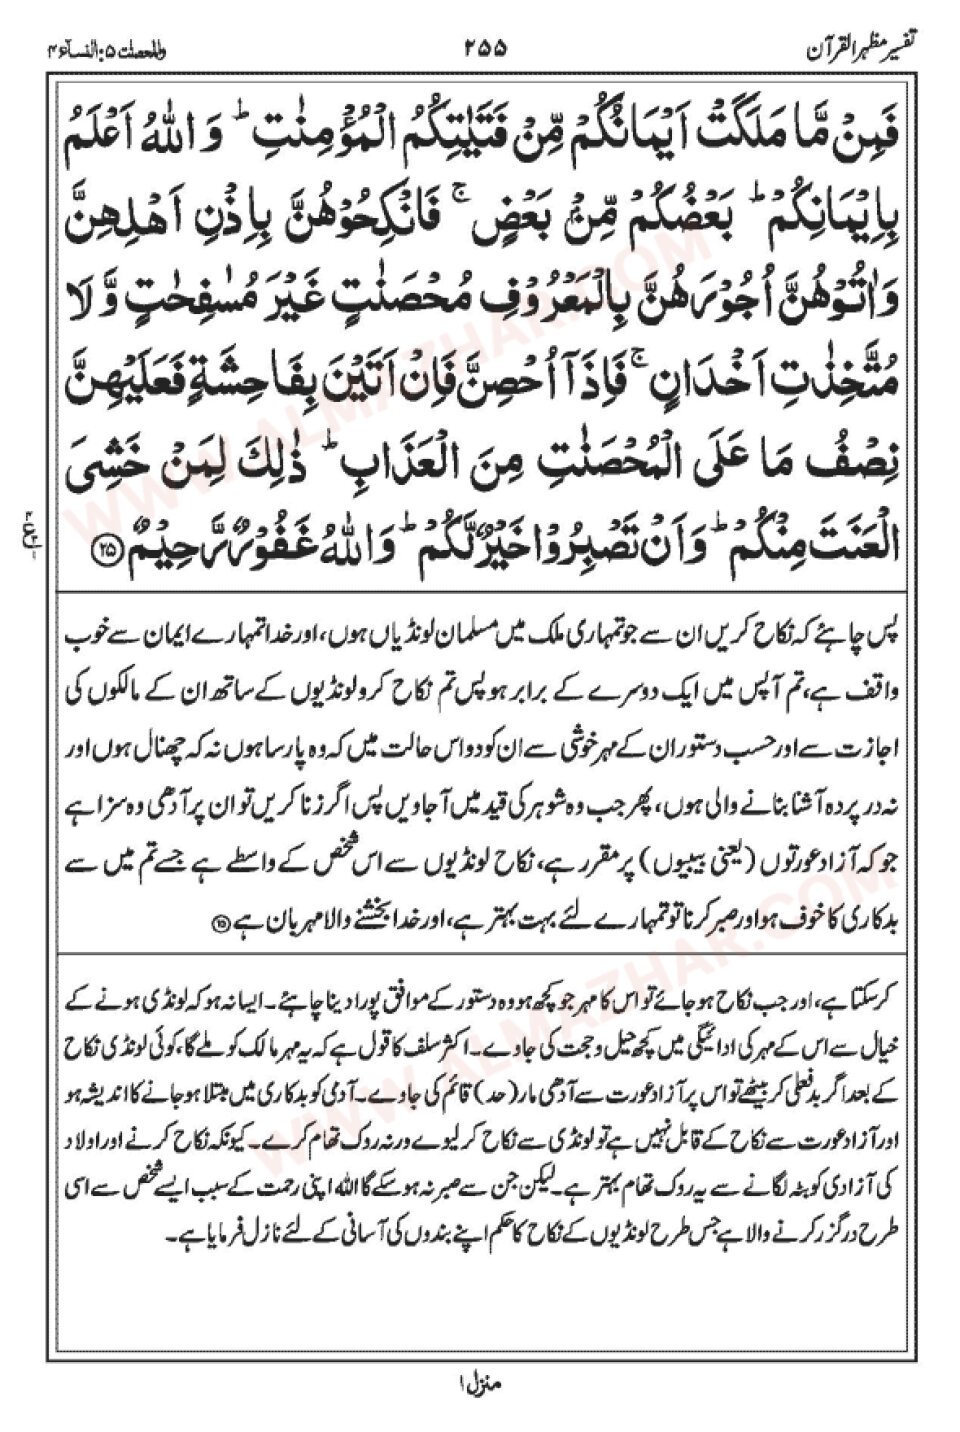 تفسیر مظہر القرآن ۲۵۵ والمحصنت ۵: النسآء ۴
فَمِنْ مَّا مَلَكَتْ اَيْمَانُكُمْ مِّنْ فَتَيٰتِكُمُ الْمُؤْمِنٰتِ ؕ وَ اللّٰهُ اَعْلَمُ
بِاِيْمَانِكُمْ ؕ بَعْضُكُمْ مِّنْۢ بَعْضٍ ۚ فَانْكِحُوْهُنَّ بِاِذْنِ اَهْلِهِنَّ
وَاٰتُوْهُنَّ اُجُوْرَهُنَّ بِالْمَعْرُوْفِ مُحْصَنٰتٍ غَيْرَ مُسٰفِحٰتٍ وَّ لَا
مُتَّخِذٰتِ اَخْدَانٍ ۚ فَاِذَاۤ اُحْصِنَّ فَاِنْ اَتَيْنَ بِفَاحِشَةٍ فَعَلَيْهِنَّ
نِصْفُ مَا عَلَى الْمُحْصَنٰتِ مِنَ الْعَذَابِ ؕ ذٰلِكَ لِمَنْ خَشِىَ
الْعَنَتَ مِنْكُمْ ؕ وَاَنْ تَصْبِرُوْا خَيْرٌ لَّكُمْ ؕ وَاللّٰهُ غَفُوْرٌ رَّحِيْمٌ ۲۵
پس چاہئے کہ نکاح کریں ان سے جو تمہاری ملک میں مسلمان لونڈیاں ہوں، اور خدا تمہارے ایمان سے خوب
واقف ہے، تم آپس میں ایک دوسرے کے برابر ہو پس تم نکاح کرو لونڈیوں کے ساتھ ان کے مالکوں کی
اجازت سے اور حسب دستور ان کے مہر خوشی سے ان کو دو اس حالت میں کہ وہ پارسا ہوں نہ کہ چھنال ہوں اور
نہ در پردہ آشنا بنانے والی ہوں، پھر جب وہ شوہر کی قید میں آجاویں پس اگر زنا کریں تو ان پر آدھی وہ سزا ہے
جو کہ آزاد عورتوں (یعنی بیبیوں) پر مقرر ہے، نکاح لونڈیوں سے اس شخص کے واسطے ہے جسے تم میں سے
بدکاری کا خوف ہو اور صبر کرنا تو تمہارے لئے بہت بہتر ہے، اور خدا بخشنے والا مہربان ہے ۲۵
کرسکتا ہے، اور جب نکاح ہو جائے تو اس کا مہر جو کچھ ہو وہ دستور کے موافق پورا دینا چاہئے۔ ایسا نہ ہو کہ لونڈی ہونے کے
خیال سے اس کے مہر کی ادائیگی میں کچھ حیل و حجت کی جاوے۔ اکثر سلف کا قول ہے کہ یہ مہر مالک کو ملے گا، کوئی لونڈی نکاح
کے بعد اگر بدفعلی کر بیٹھے تو اس پر آزاد عورت سے آدھی مار (حد) قائم کی جاوے۔ آدمی کو بدکاری میں مبتلا ہو جانے کا اندیشہ ہو
اور آزاد عورت سے نکاح کے قابل نہیں ہے تو لونڈی سے نکاح کر لیوے ورنہ روک تھام کرے۔ کیونکہ نکاح کرنے اور اولاد
کی آزادی کو بٹہ لگانے سے یہ روک تھام بہتر ہے۔ لیکن جن سے صبر نہ ہو سکے گا اللہ اپنی رحمت کے سبب ایسے شخص سے اسی
طرح درگزر کرنے والا ہے جس طرح لونڈیوں کے نکاح کا حکم اپنے بندوں کی آسانی کے لئے نازل فرمایا ہے۔
منزل ۱
WWW.ALMAZHAR.COM
WWW.ALMAZHAR.COM